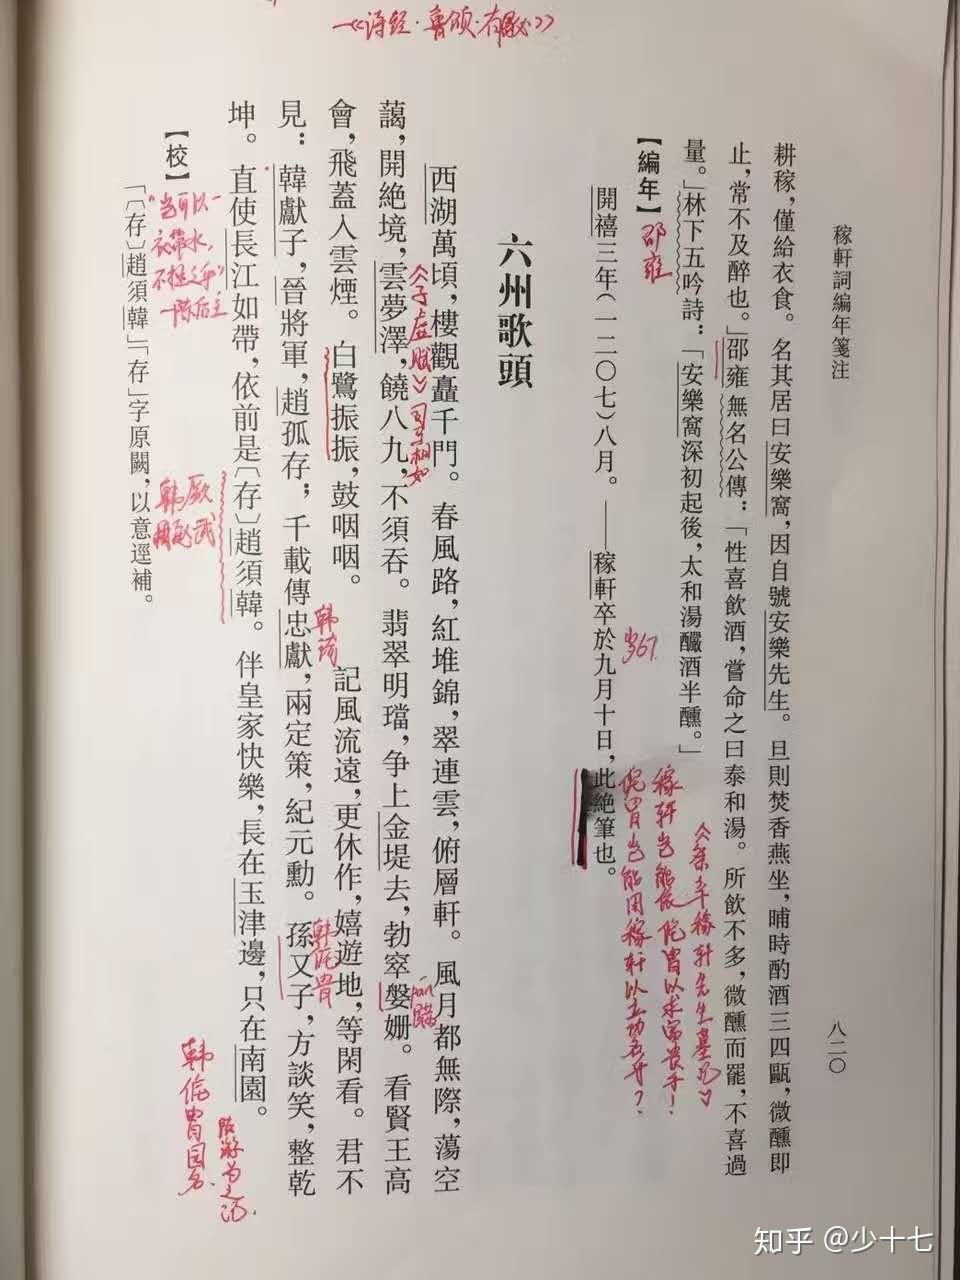 稼軒詞編年箋注
八二〇
耕稼，僅給衣食。名其居曰安樂窩，因自號安樂先生。旦則焚香燕坐，晡時酌酒三四甌，微醺即
止，常不及醉也。」邵雍無名公傳：「性喜飲酒，嘗命之曰泰和湯。所飲不多，微醺而罷，不喜過
量。」林下五吟詩：「安樂窩深初起後，太和湯釅酒半醺。」
【編年】
邵雍
開禧三年（一二〇七）八月。——稼軒卒於九月十日，此絶筆也。
岁67.
《祭辛稼轩先生墓文》
稼轩岂能依侂胄以求富贵乎！
侂胄岂能用稼轩以立功名乎？
六州歌頭
西湖萬頃，樓觀矗千門。春風路，紅堆錦，翠連雲，俯層軒。風月都無際，蕩空
藹，開絶境，雲夢澤，饒八九，不須吞。翡翠明璫，争上金堤去，勃窣媻姗。看賢王高
會，飛蓋入雲煙。白鷺振振，鼓咽咽。　　記風流遠，更休作，嬉遊地，等閑看。君不
見：韓獻子，晉將軍，趙孤存；千載傳忠獻，兩定策，紀元勳。孫又子，方談笑，整乾
坤。直使長江如帶，依前是〔存〕趙須韓。伴皇家快樂，長在玉津邊，只在南園。
《子虚赋》司马相如
—《诗经·鲁颂·有駜》
韩琦
韩侂胄
韩厥
韩侂胄园名
陆游为之记.
【校】
「〔存〕趙須韓」「存」字原闕，以意逕補。
"岂可以一
衣带水，
不拯之乎"
—陈后主
知乎 @少十七